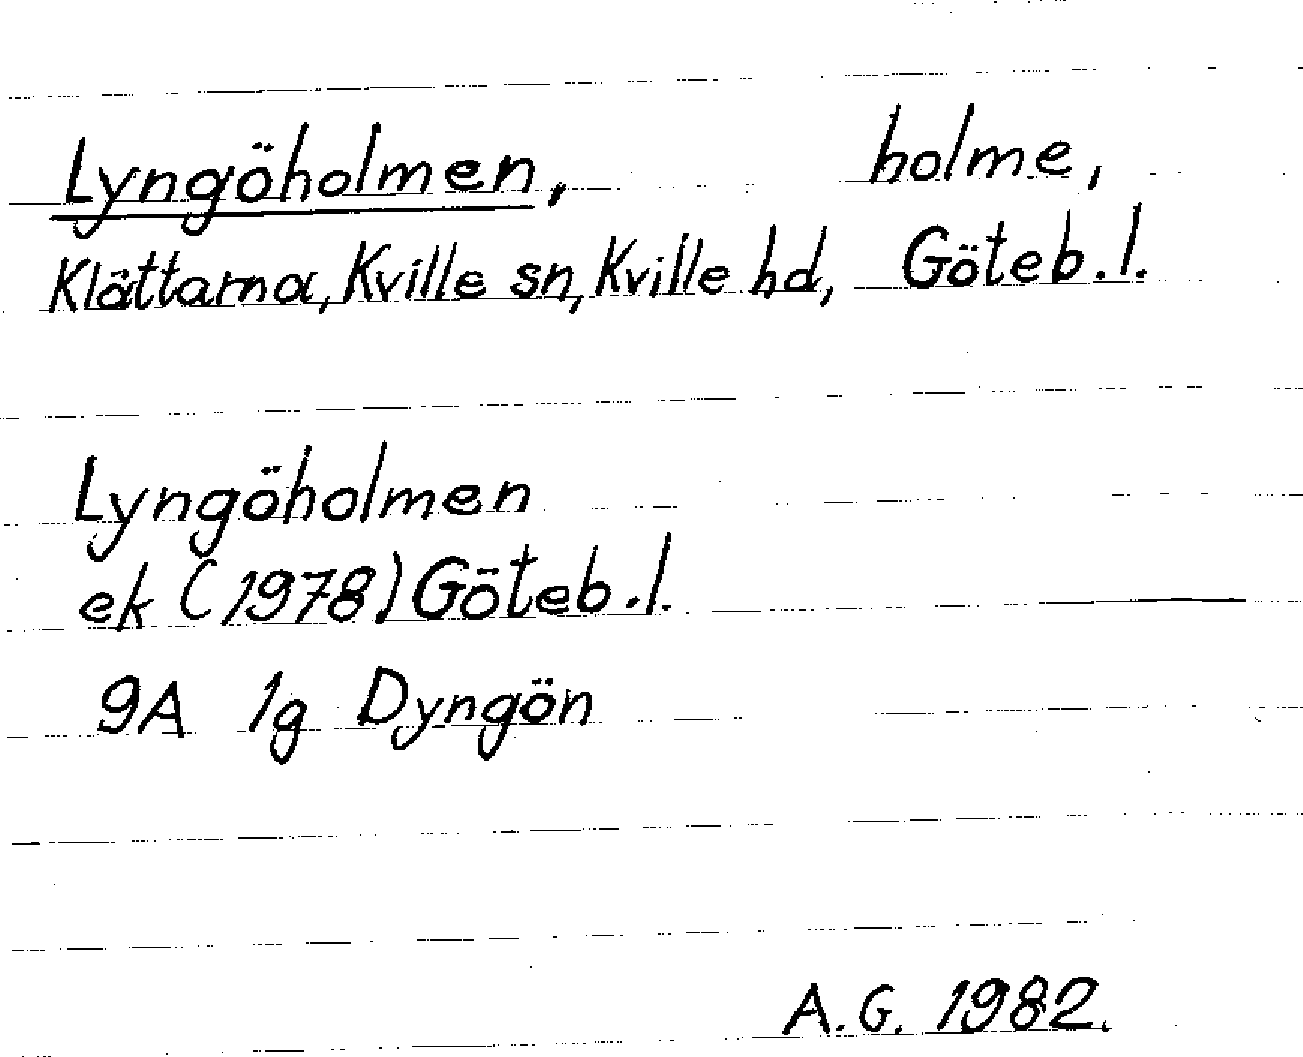 Lyngöholmen, holme,
Klåttarna, Kville sn, Kville hd, Göteb.l.
Lyngöholmen
ek (1978) Göteb.l.
9A 1g Dyngön
A.G. 1982.